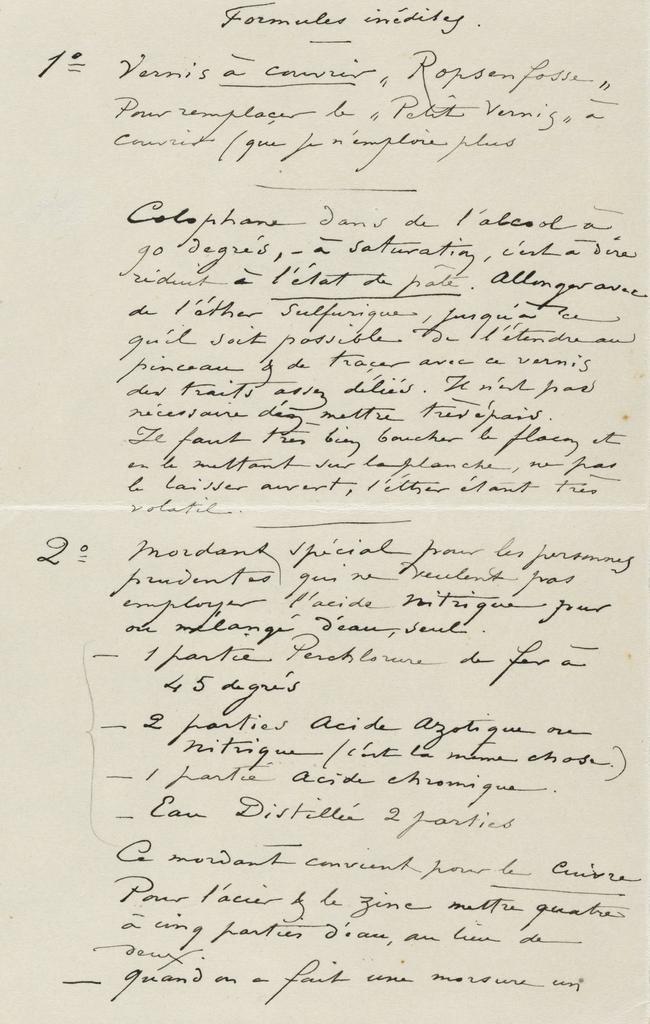 Formules inédites.
1º Vernis à couvrir „ Ropsenfosse „
Pour remplacer le „ Petit Vernis „ à
couvrir (que je n'emploie plus
Colophane dans de l'alcool à
90 degrés, - à saturation, c'est à dire
réduit à l'état de pâte. Allonger avec
de l'éther sulfurique, jusqu'à ce
qu'il soit possible de l'étendre au
pinceau & de tracer avec ce vernis
des traits assez déliés. Il n'est pas
nécessaire d'en mettre très épais.
Il faut très bien boucher le flacon et
en le mettant sur la planche, ne pas
le laisser ouvert, l'éther étant très
volatil.
2º Mordant spécial pour les personnes
prudentes qui ne veulent pas
employer l'acide nitrique pur
ou mélangé d'eau, seul.
- 1 partie Perchlorure de fer à
45 degrés
- 2 parties Acide Azotique ou
nitrique (c'est la même chose.)
- 1 partie Acide chromique.
- Eau Distillée 2 parties
Ce mordant convient pour le Cuivre
Pour l'acier & le zinc mettre quatre
à cinq parties d'eau, au lieu de
deux.
— quand on a fait une morsure un